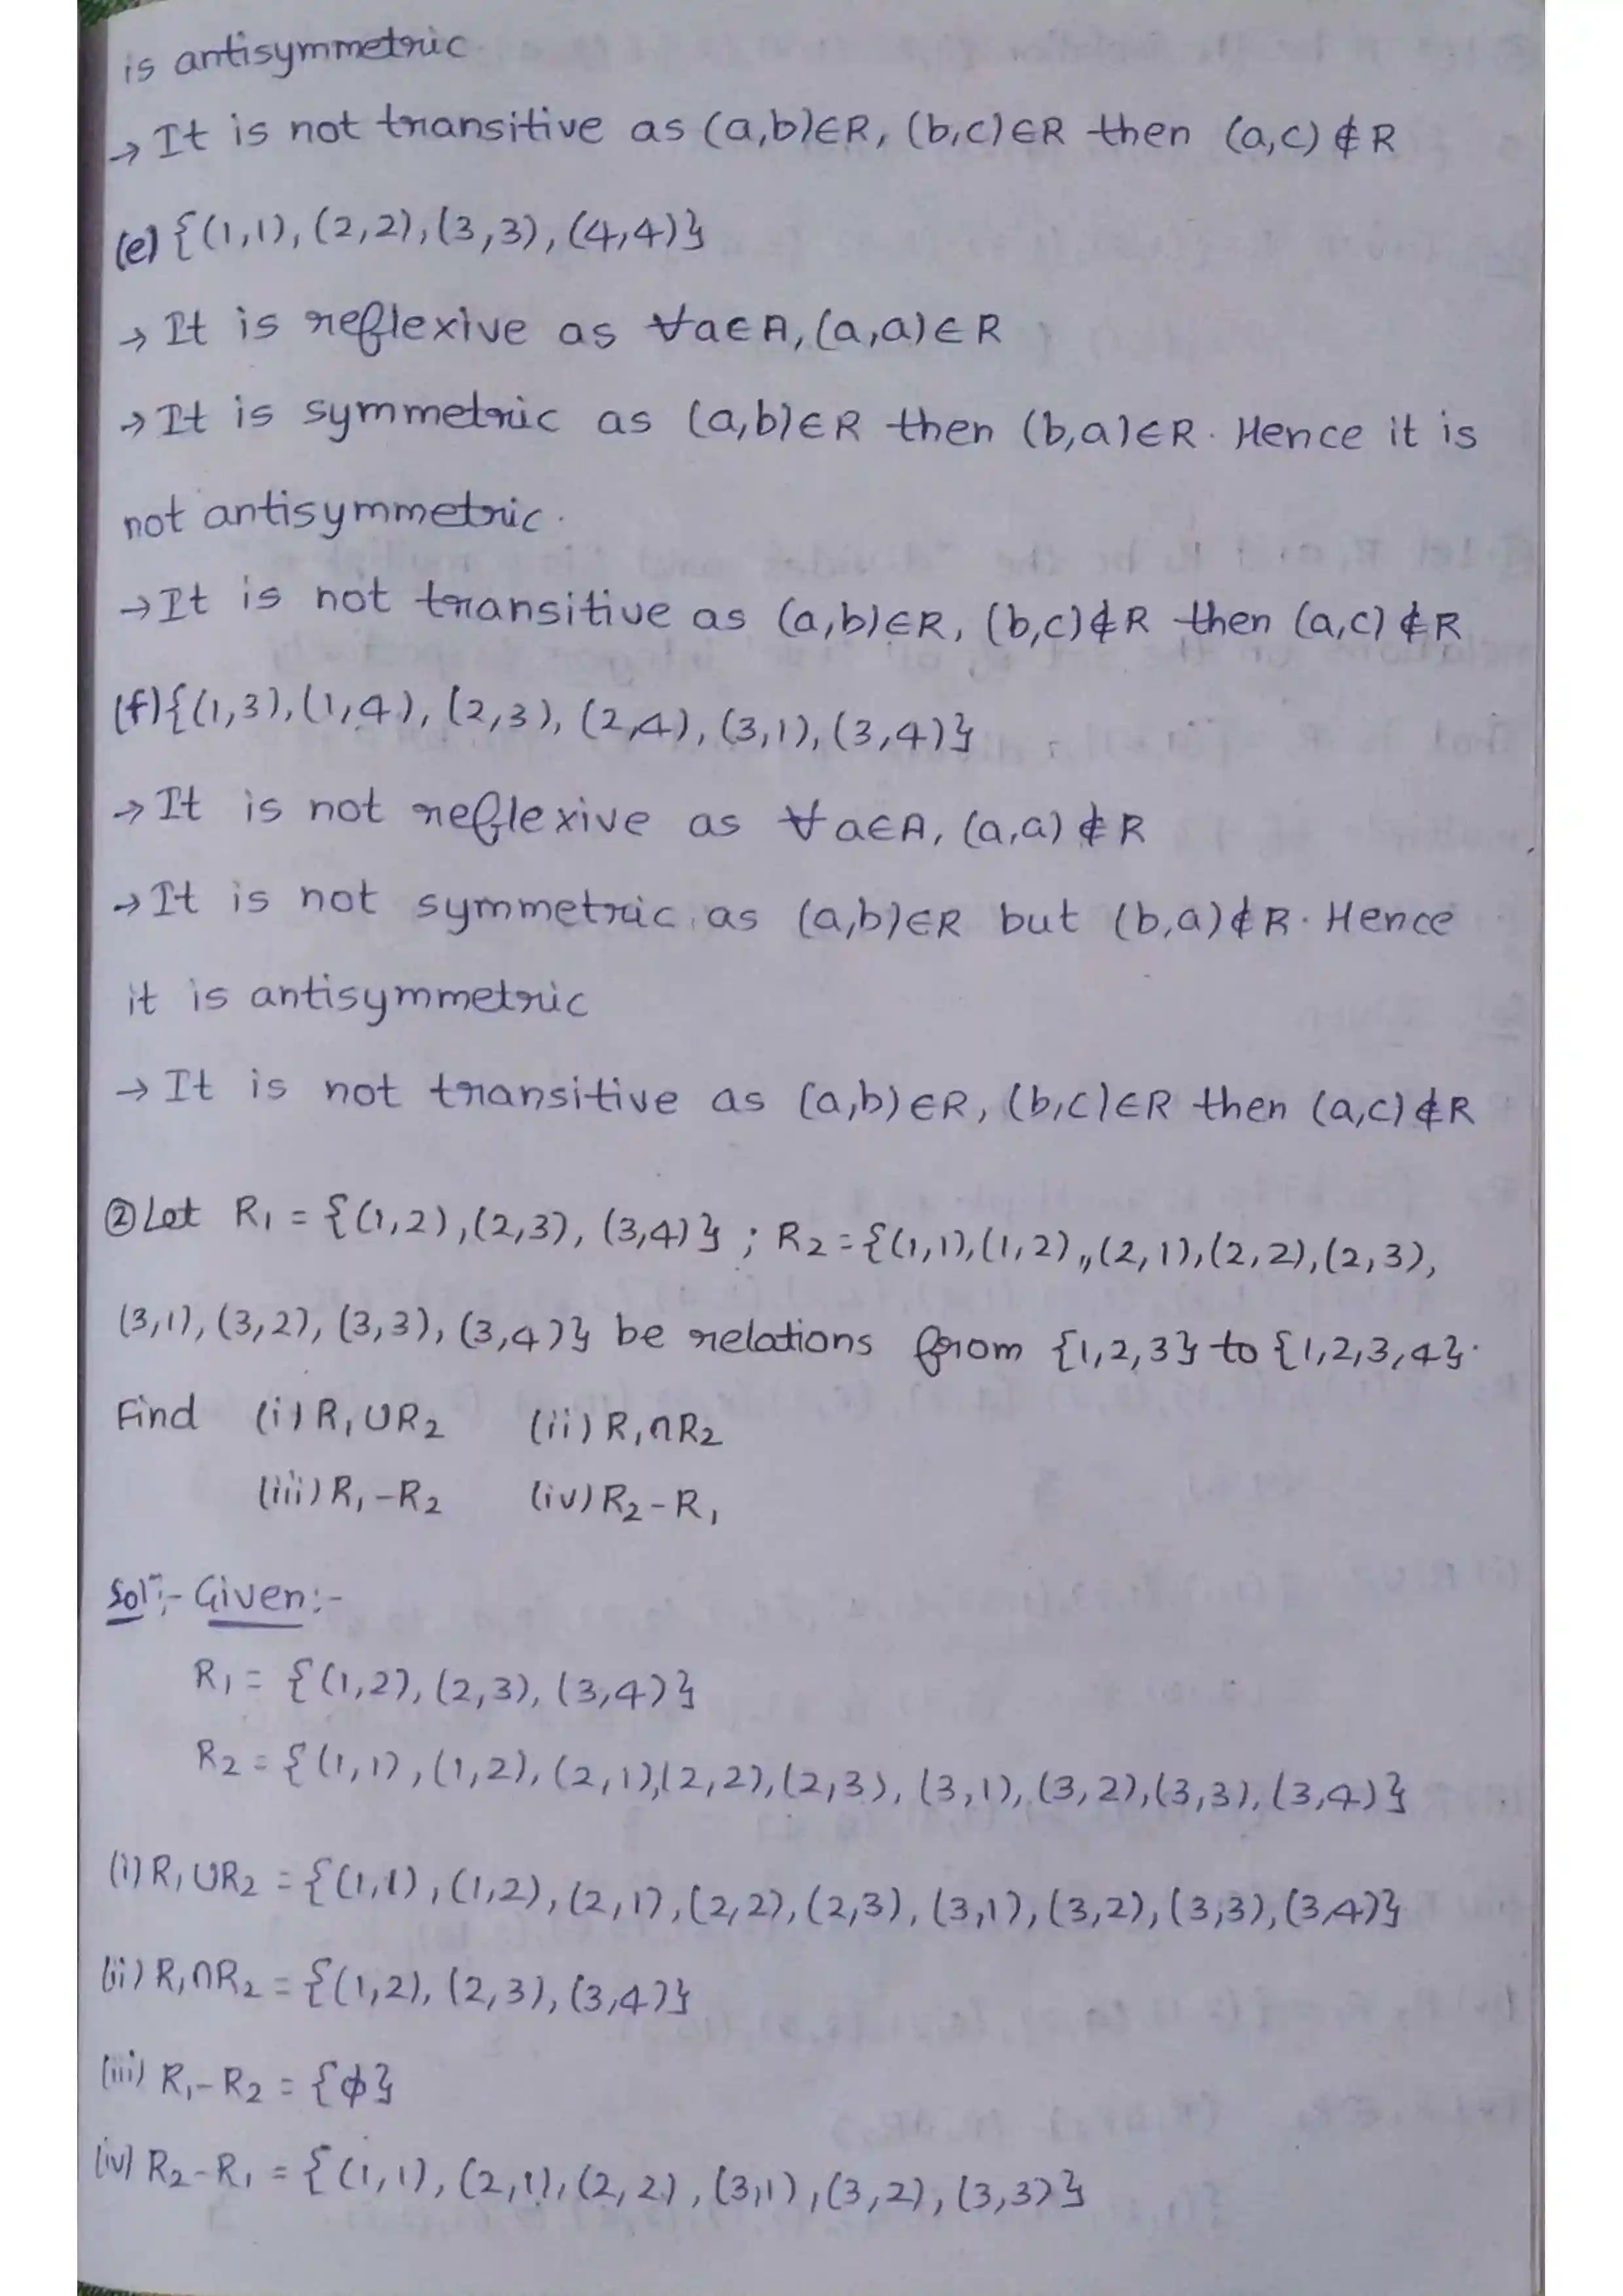 is antisymmetric
→ It is not transitive as (a,b)∈R, (b,c)∈R then (a,c)∉R
(e) {(1,1), (2,2), (3,3), (4,4)}
→ It is reflexive as ∀a∈A, (a,a)∈R
→ It is symmetric as (a,b)∈R then (b,a)∈R. Hence it is
not antisymmetric.
→ It is not transitive as (a,b)∈R, (b,c)∉R then (a,c)∉R
(f) {(1,3), (1,4), (2,3), (2,4), (3,1), (3,4)}
→ It is not reflexive as ∀a∈A, (a,a)∉R
→ It is not symmetric as (a,b)∈R but (b,a)∉R. Hence
it is antisymmetric
→ It is not transitive as (a,b)∈R, (b,c)∈R then (a,c)∉R
② Let R₁ = {(1,2), (2,3), (3,4)} ; R₂ = {(1,1), (1,2),, (2,1), (2,2), (2,3),
(3,1), (3,2), (3,3), (3,4)} be relations from {1,2,3} to {1,2,3,4}.
Find (i) R₁∪R₂ (ii) R₁∩R₂
(iii) R₁-R₂ (iv) R₂-R₁
Solⁿ:- Given:-
R₁ = {(1,2), (2,3), (3,4)}
R₂ = {(1,1), (1,2), (2,1), (2,2), (2,3), (3,1), (3,2), (3,3), (3,4)}
(i) R₁∪R₂ = {(1,1), (1,2), (2,1), (2,2), (2,3), (3,1), (3,2), (3,3), (3,4)}
(ii) R₁∩R₂ = {(1,2), (2,3), (3,4)}
(iii) R₁-R₂ = {ϕ}
(iv) R₂-R₁ = {(1,1), (2,1), (2,2), (3,1), (3,2), (3,3)}